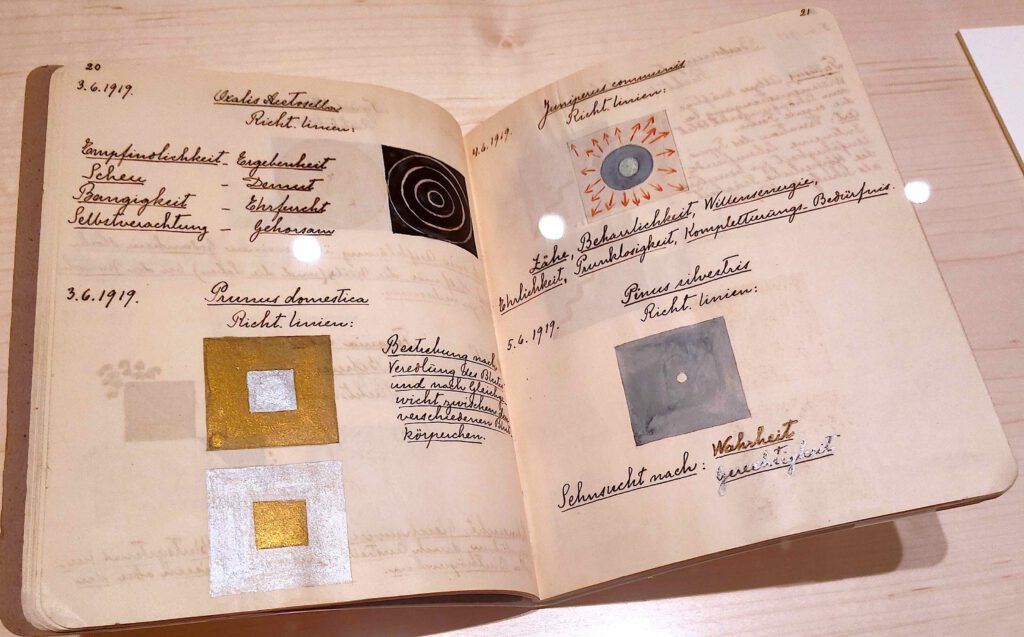 20
3.6.1919.
Oxalis Acetosella
Richt. linien:
Empfindlichkeit – Ergebenheit
Scheu – Demut
Bangigkeit – Ehrfurcht
Selbstverachtung – Gehorsam
3.6.1919.
Prunus domestica
Richt. linien:
Bestrebung nach
Veredlung des
und nach Gleichge-
wicht zwischen
verschiedenen
körperchen.
21
4.6.1919.
Juniperus communis
Richt. linien:
Zähe, Beharrlichkeit, Willensenergie,
Ehrlichkeit, Prunklosigkeit, Komplettierungs-Bedürfnis.
5.6.1919.
Pinus silvestris
Richt. linien:
Sehnsucht nach: Wahrheit
Gerechtigkeit